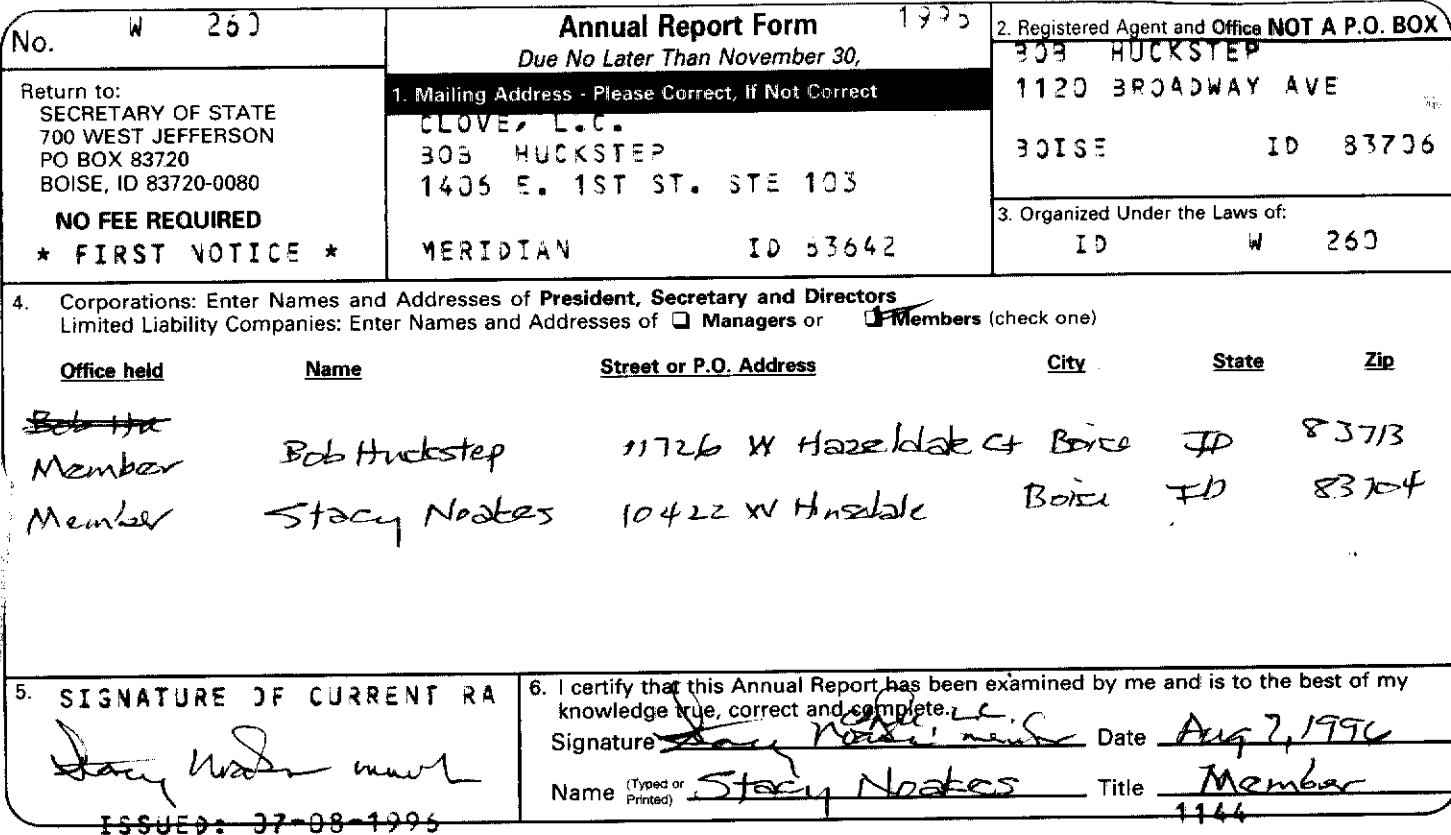 No. W 260
Annual Report Form 1996
Due No Later Than November 30,
Return to:
SECRETARY OF STATE
700 WEST JEFFERSON
PO BOX 83720
BOISE, ID 83720-0080
NO FEE REQUIRED
* FIRST NOTICE *
1. Mailing Address - Please Correct, If Not Correct
CLOVE, L.C.
BOB HUCKSTEP
1406 E. 1ST ST. STE 103
MERIDIAN ID 83642
2. Registered Agent and Office NOT A P.O. BOX
BOB HUCKSTEP
1120 BROADWAY AVE
BOISE ID 83706
3. Organized Under the Laws of:
ID W 260
4. Corporations: Enter Names and Addresses of President, Secretary and Directors
Limited Liability Companies: Enter Names and Addresses of ☐ Managers or ☑ Members (check one)
Office held Name Street or P.O. Address City State Zip
Bob Huc
Member Bob Huckstep 11726 W Hazeldale Ct Boise ID 83713
Member Stacy Noakes 10422 W Hinsdale Boise ID 83704
5. SIGNATURE OF CURRENT RA
Stacy Noakes
6. I certify that this Annual Report has been examined by me and is to the best of my
knowledge true, correct and complete.
Signature Stacy Noakes member Date Aug 7, 1996
Name (Typed or Printed) Stacy Noakes Title Member
ISSUED: 07-08-1996 1144